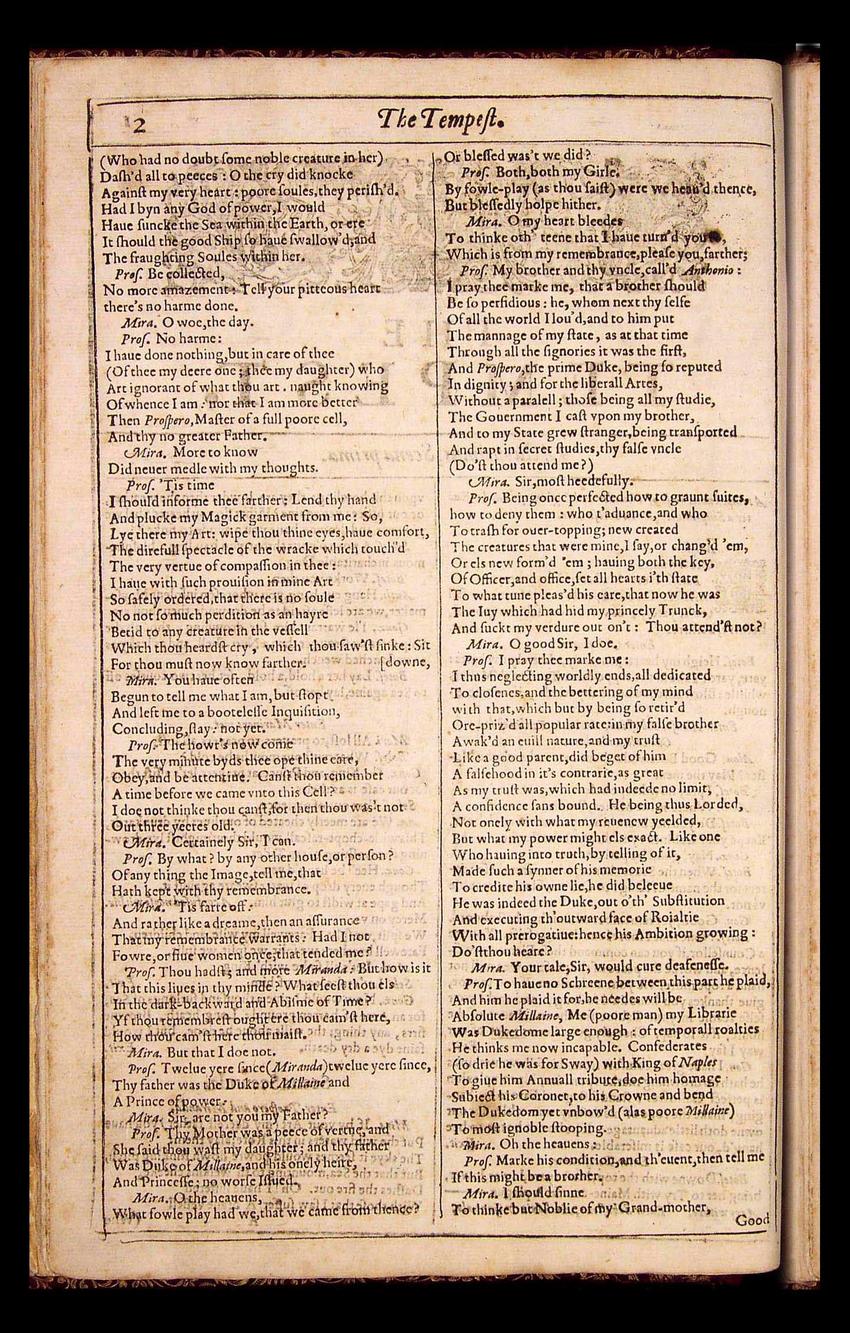 2
The Tempeſt.
(Who had no doubt ſome noble creature in her)
Daſh'd all to peeces: O the cry did knocke
Againſt my very heart: poore ſoules, they periſh'd.
Had I byn any God of power, I would
Haue ſuncke the Sea within the Earth, or ere
It ſhould the good Ship ſo haue ſwallow'd, and
The fraughting Soules within her.
Proſ. Be collected,
No more amazement: Tell your pitteous heart
there's no harme done.
Mira. O woe, the day.
Proſ. No harme:
I haue done nothing, but in care of thee
(Of thee my deere one; thee my daughter) who
Art ignorant of what thou art. naught knowing
Of whence I am: nor that I am more better
Then Proſpero, Maſter of a full poore cell,
And thy no greater Father.
Mira. More to know
Did neuer medle with my thoughts.
Proſ. 'Tis time
I ſhould informe thee farther: Lend thy hand
And plucke my Magick garment from me: So,
Lye there my Art: wipe thou thine eyes, haue comfort,
The direfull ſpectacle of the wracke which touch'd
The very vertue of compaſſion in thee:
I haue with ſuch prouiſion in mine Art
So ſafely ordered, that there is no ſoule
No not ſo much perdition as an hayre
Betid to any creature in the veſſell
Which thou heardſt cry, which thou ſaw'ſt ſinke: Sit
For thou muſt now know farther. [downe,
Mira. You haue often
Begun to tell me what I am, but ſtopt
And left me to a booteleſſe Inquiſition,
Concluding, ſtay: not yet.
Proſ. The howr's now come
The very minute byds thee ope thine eare,
Obey, and be attentiue. Canſt thou remember
A time before we came vnto this Cell?
I doe not thinke thou canſt, for then thou was't not
Out three yeeres old.
Mira. Certainely Sir, I can.
Proſ. By what? by any other houſe, or perſon?
Of any thing the Image, tell me, that
Hath kept with thy remembrance.
Mira. 'Tis farre off:
And rather like a dreame, then an aſſurance
That my remembrance warrants: Had I not
Fowre, or fiue women once, that tended me?
Proſ. Thou hadſt; and more Miranda: But how is it
That this liues in thy minde? What ſeeſt thou els
In the dark-backward and Abiſme of Time?
Yf thou remembreſt ought ere thou cam'ſt here,
How thou cam'ſt here thou maiſt.
Mira. But that I doe not.
Proſ. Twelue yere ſince (Miranda) twelue yere ſince,
Thy father was the Duke of Millaine and
A Prince of power:
Mira. Sir, are not you my Father?
Proſ. Thy Mother was a peece of vertue, and
She ſaid thou waſt my daughter; and thy father
Was Duke of Millaine, and his onely heire,
And Princeſſe; no worſe Iſſued.
Mira. O the heauens,
What fowle play had we, that we came from thence?
Or bleſſed was't we did?
Proſ. Both, both my Girle.
By fowle-play (as thou ſaiſt) were we heau'd thence,
But bleſſedly holpe hither.
Mira. O my heart bleedes
To thinke oth' teene that I haue turn'd you to,
Which is from my remembrance, pleaſe you, farther;
Proſ. My brother and thy vncle, call'd Anthonio:
I pray thee marke me, that a brother ſhould
Be ſo perfidious: he, whom next thy ſelfe
Of all the world I lou'd, and to him put
The mannage of my ſtate, as at that time
Through all the ſignories it was the firſt,
And Proſpero, the prime Duke, being ſo reputed
In dignity; and for the liberall Artes,
Without a paralell; thoſe being all my ſtudie,
The Gouernment I caſt vpon my brother,
And to my State grew ſtranger, being tranſported
And rapt in ſecret ſtudies, thy falſe vncle
(Do'ſt thou attend me?)
Mira. Sir, moſt heedefully.
Proſ. Being once perfected how to graunt ſuites,
how to deny them: who t'aduance, and who
To traſh for ouer-topping; new created
The creatures that were mine, I ſay, or chang'd 'em,
Or els new form'd 'em; hauing both the key,
Of Officer, and office, ſet all hearts i'th ſtate
To what tune pleas'd his eare, that now he was
The Iuy which had hid my princely Trunck,
And ſuckt my verdure out on't: Thou attend'ſt not?
Mira. O good Sir, I doe.
Proſ. I pray thee marke me:
I thus neglecting worldly ends, all dedicated
To cloſenes, and the bettering of my mind
with that, which but by being ſo retir'd
Ore-priz'd all popular rate: in my falſe brother
Awak'd an euill nature, and my truſt
Like a good parent, did beget of him
A falſehood in it's contrarie, as great
As my truſt was, which had indeede no limit,
A confidence ſans bound. He being thus Lorded,
Not onely with what my reuenew yeelded,
But what my power might els exact. Like one
Who hauing into truth, by telling of it,
Made ſuch a ſynner of his memorie
To credite his owne lie, he did beleeue
He was indeed the Duke, out o'th' Subſtitution
And executing th'outward face of Roialtie
With all prerogatiue: hence his Ambition growing:
Do'ſt thou heare?
Mira. Your tale, Sir, would cure deafeneſſe.
Proſ. To haue no Schreene between this part he plaid,
And him he plaid it for, he needes will be
Abſolute Millaine, Me (poore man) my Librarie
Was Dukedome large enough: of temporall roalties
He thinks me now incapable. Confederates
(ſo drie he was for Sway) with King of Naples
To giue him Annuall tribute, doe him homage
Subiect his Coronet, to his Crowne and bend
The Dukedom yet vnbow'd (alas poore Millaine)
To moſt ignoble ſtooping.
Mira. Oh the heauens:
Proſ. Marke his condition, and th'euent, then tell me
If this might be a brother.
Mira. I ſhould ſinne
To thinke but Noblie of my Grand-mother,
Good